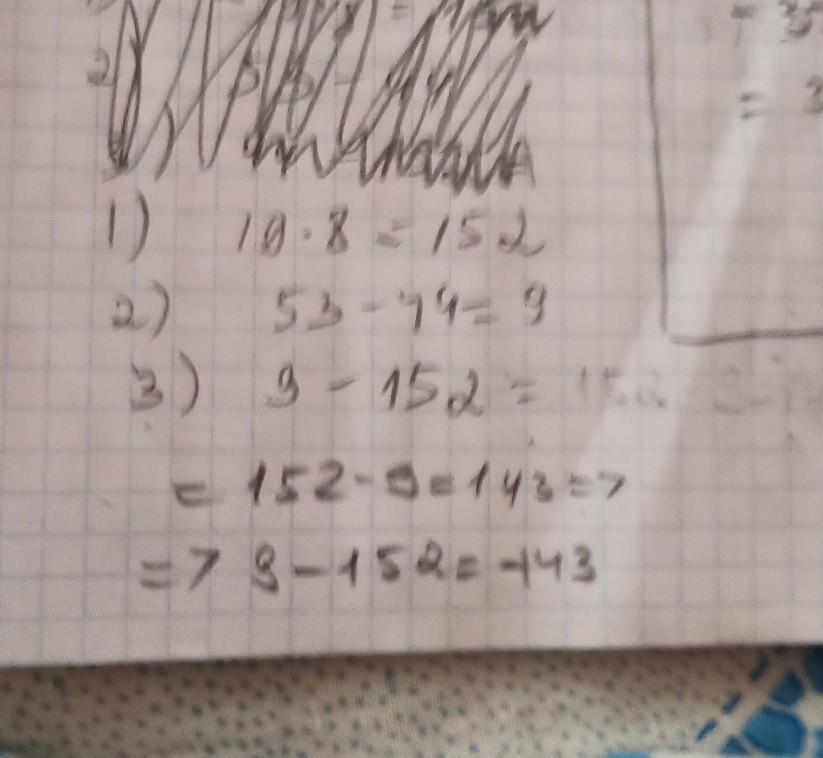 = 3
1) 19 · 8 = 152
2) 53 - 44 = 9
3) 9 - 152 =
= 152 - 9 = 143 =>
=> 9 - 152 = -143